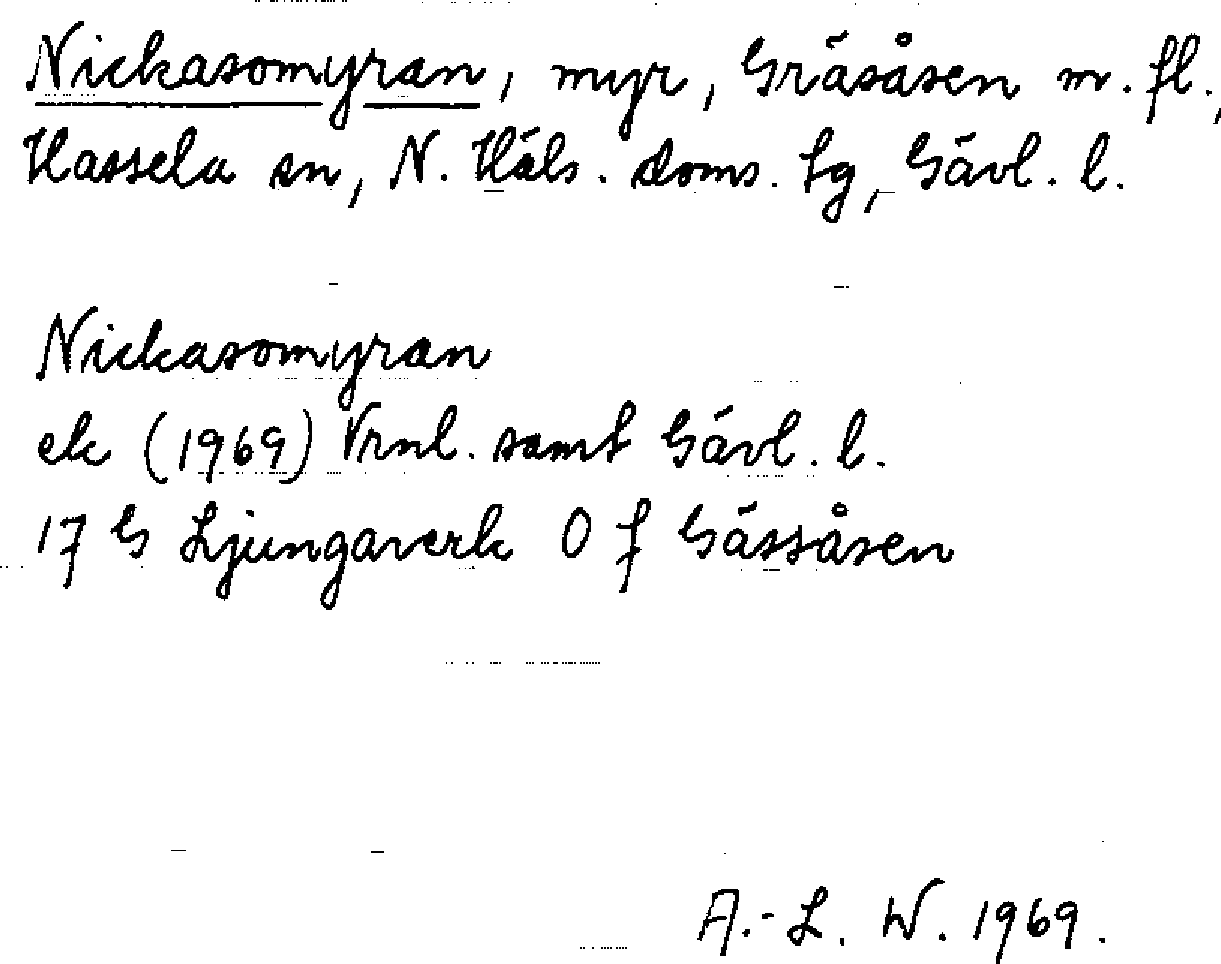 Nickasomyran, myr, Gräsåsen m. fl.,
Hassela sn, N. Häls. doms. tg, Gävl. l.
Nickasomyran
ek (1969) Vrnl. samt Gävl. l.
17 G Ljungaverk O f Gässåsen
A.-L. W. 1969.